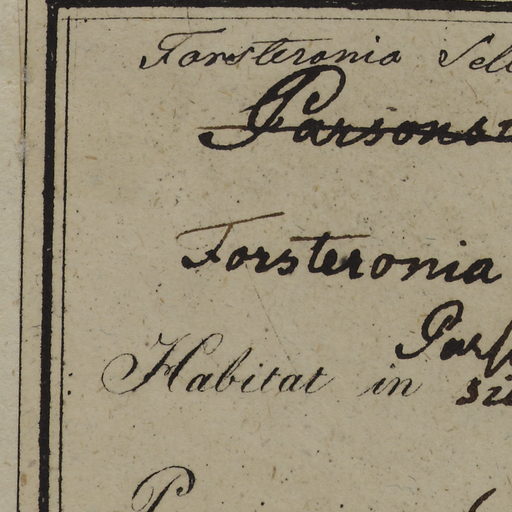 Forsteronia Sell
Parsons
Forsteronia
Pars
Habitat in